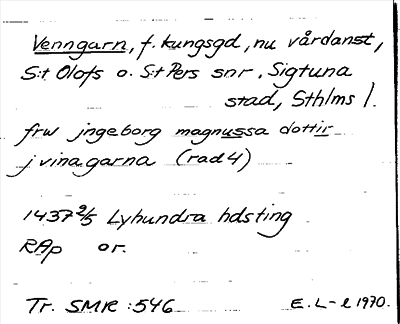 Venngarn, f. kungsgd, nu vårdanst,
S:t Olofs o. S:t Pers snr, Sigtuna
stad, Sthlms l.
frw jngeborg magnussa dottir
j vinagarna (rad 4)
1437 2/5 Lyhundra hdsting
RAp or.
Tr. SMR :546 E. L-l 1970.